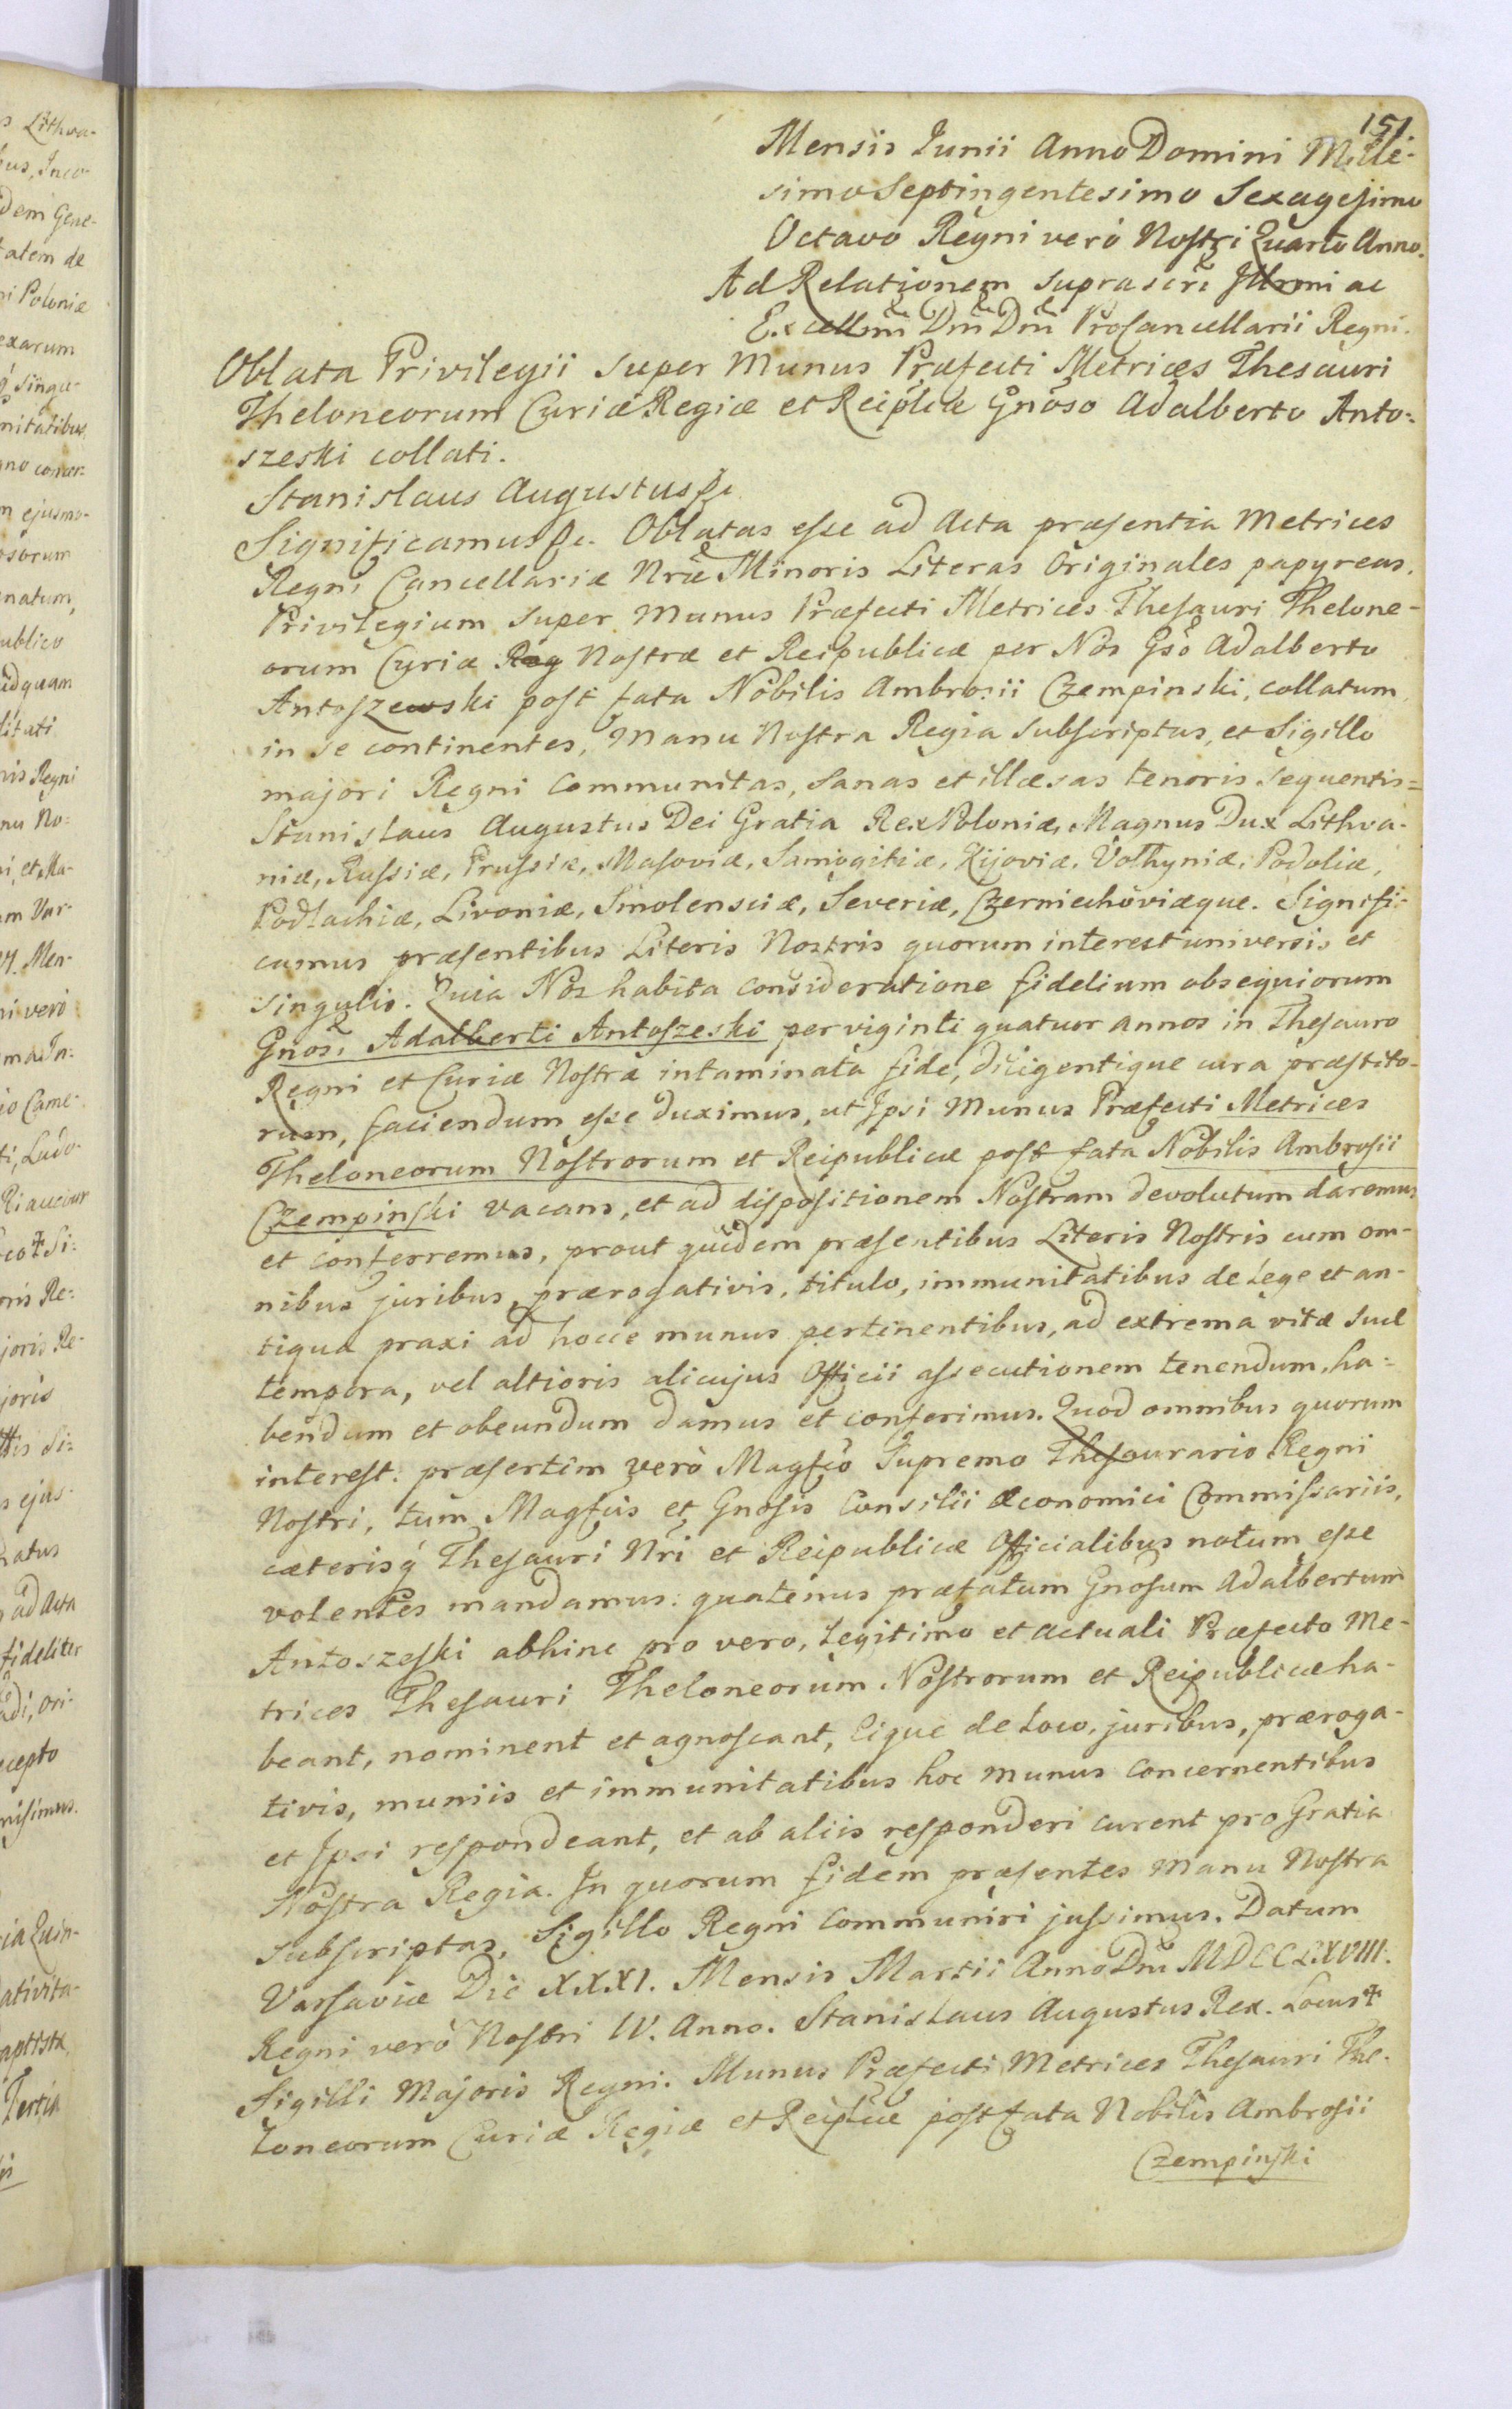 151.
Mensis Junii Anno Domini Mille-
simo Septingentesimo Sexagesimo
Octavo Regni verò Nostri Quarto Anno.
Ad Relationem suprascri Illrmi ac
Excellmi Dni Dni ProCancellarii Regni.
Oblata Privilegii super Munus Præfecti Metrices Thesauri
Theloneorum Curiæ Regiæ et Reiplicæ Gnoso Adalberto Anto-
szeski collati.
Stanislaus Augustus &c
Significamus &c. Oblatas esse ad Acta præsentia Metrices
Regni Cancellariæ Nræ Minoris Literas Originales papyreas,
Privilegium super Munus Præfecti Metrices Thesauri Thelone-
orum Curiæ Reg Nostræ et Reipublicæ per Nos Gso Adalberto
Antoszewski post fata Nobilis Ambrosii Czempinski, collatum
in se continentes, Manu Nostra Regia subscriptas, et Sigillo
majori Regni communitas, sanas et illæsas tenoris sequentis=
Stanislaus Augustus Dei Gratia Rex Poloniæ, Magnus Dux Lithva-
niæ, Russiæ, Prussiæ, Masoviæ, Samogitiæ, Kijoviæ, Volhyniæ, Podoliæ,
Podlachiæ, Livoniæ, Smolensciæ, Severiæ, Czerniechoviæque. Signifi-
camus præsentibus Literis Nostris quorum interest universis et
singulis. Quia Nos habita consideratione fidelium obsequiorum
Gnosi Adalberti Antoszeski per viginti quatuor annos in Thesauro
Regni et Curiæ Nostræ intaminata fide, diligentique cura præstito-
rum, faciendum esse duximus, ut Ipsi Munus Præfecti Metrices
Theloneorum Nostrorum et Reipublicæ post fata Nobilis Ambrosii
Czempinski vacans, et ad dispositionem Nostram devolutum daremus
et conferremus, prout quidem præsentibus Literis Nostris cum om-
nibus juribus, prærogativis, titulo, immunitatibus de Lege et an-
tiqua praxi ad hocce munus pertinentibus, ad extrema vitæ suæ
tempora, vel altioris alicujus Officii assecutionem tenendum, ha-
bendum et obeundum damus et conferimus. Quod omnibus quorum
interest: præsertim verò Magfco Supremo Thesaurario Regni
Nostri, tum Magfcis et Gnosis Consilii Œconomici Commissariis,
cæterisq́ Thesauri Nri et Reipublicæ Officialibus notum esse
volentes mandamus: quatenus præfatum Gnosum Adalbertum
Antoszeski abhinc pro vero, legitimo et actuali Præfecto Me-
trices Thesauri Theloneorum Nostrorum et Reipublicæ ha-
beant, nominent et agnoscant, Eique de Loco, juribus, præroga-
tivis, muniis et immunitatibus hoc munus concernentibus
et Ipsi respondeant, et ab aliis responderi curent pro Gratia
Nostra Regia. In quorum fidem præsentes Manu Nostra
subscriptas, Sigillo Regni communiri jussimus. Datum
Varsaviæ Die XXXI. Mensis Martii Anno Dni MDCCLXVIII.
Regni verò Nostri IV. Anno. Stanislaus Augustus Rex. Locus ✝
Sigilli Majoris Regni. Munus Præfecti Metrices Thesauri The-
loneorum Curiæ Regiæ et Reiplicæ post fata Nobilis Ambrosii
Czempinski